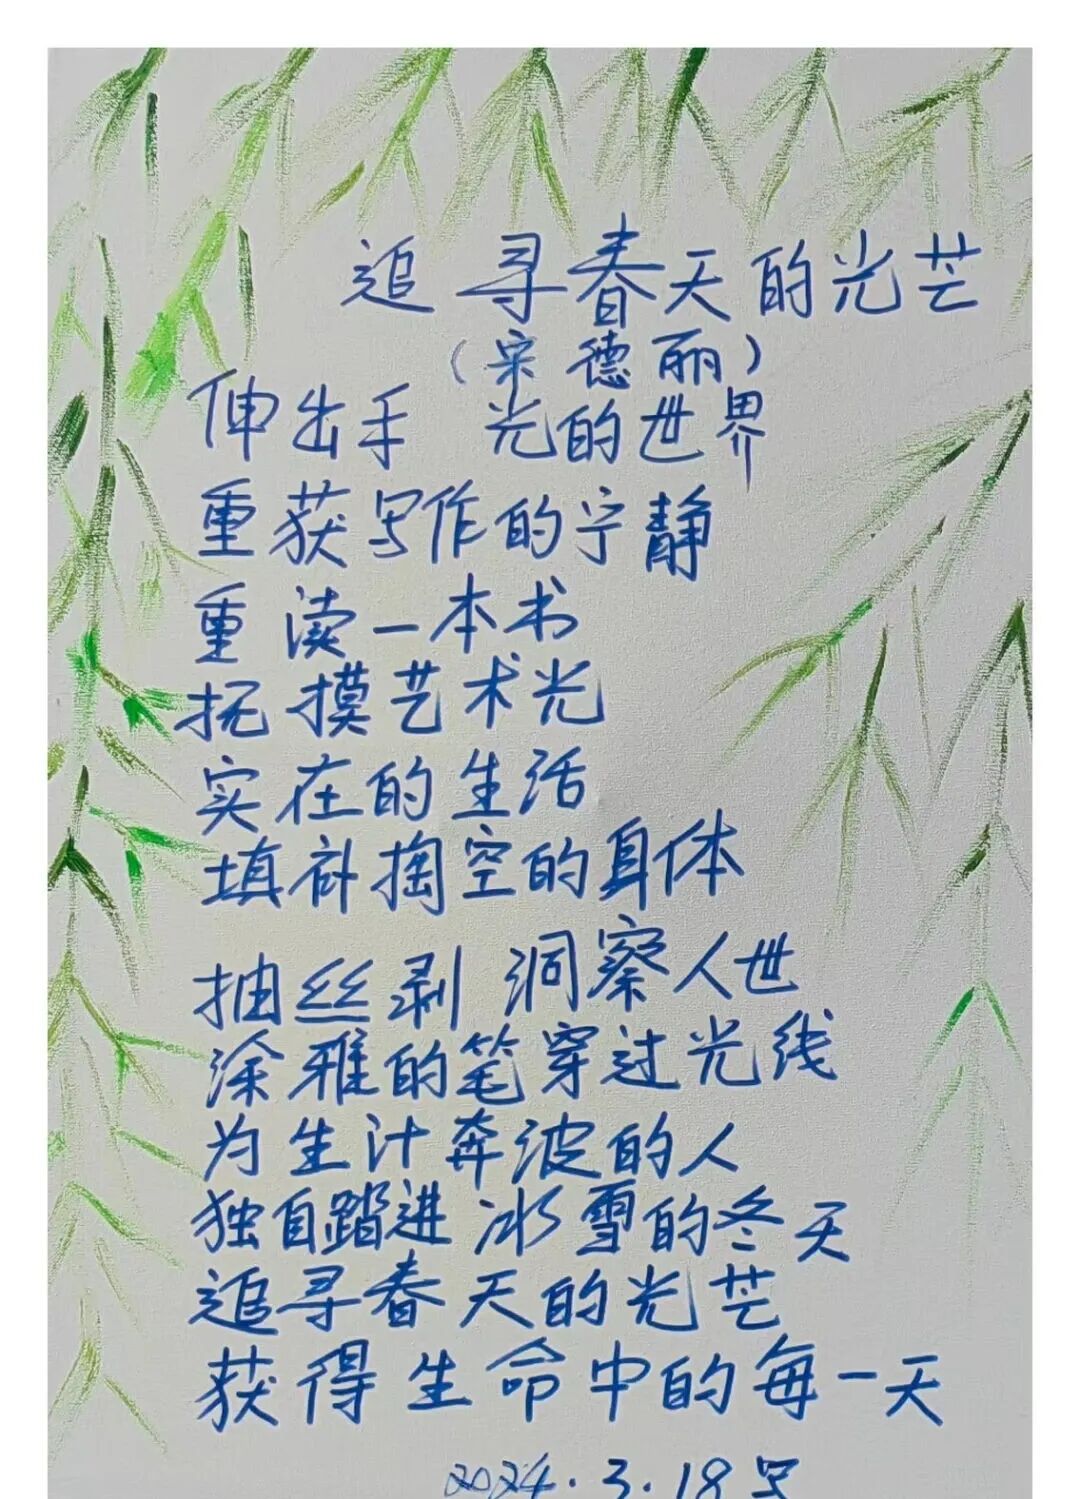 追寻春天的光芒
（宋德丽）
伸出手 光的世界
重获写作的宁静
重读一本书
抚摸艺术光
实在的生活
填补掏空的身体
抽丝剥 洞察人世
涂雅的笔穿过光线
为生计奔波的人
独自踏进冰雪的冬天
追寻春天的光芒
获得生命中的每一天
2024.3.18